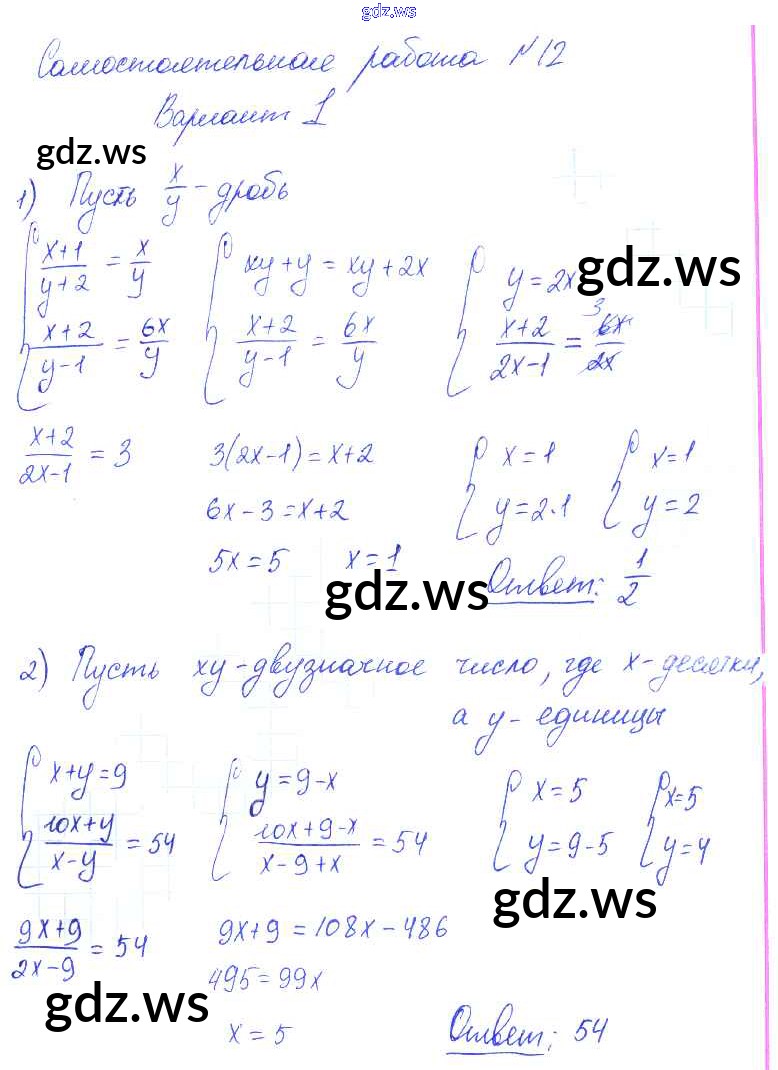 gdz.ws
Самостоятельная работа №12
Вариант 1
gdz.ws
1) Пусть x/y - дробь
gdz.ws
{ (x+1)/(y+2) = x/y { xy+y = xy+2x { y=2x
(x+2)/(y-1) = 6x/y (x+2)/(y-1) = 6x/y (x+2)/(2x-1) = 6x/2x 3
(x+2)/(2x-1) = 3 3(2x-1) = x+2 { x=1 { x=1
6x-3 = x+2 y=2·1 y=2
5x=5 x=1
gdz.ws
Ответ: 1/2
2) Пусть xy - двузначное число, где x - десятки,
а y - единицы
{ x+y=9 { y=9-x { x=5 { x=5
(10x+y)/(x-y) = 54 (10x+9-x)/(x-9+x) = 54 y=9-5 y=4
gdz.ws
(9x+9)/(2x-9) = 54 9x+9 = 108x-486
495=99x
gdz.ws
x=5 Ответ: 54